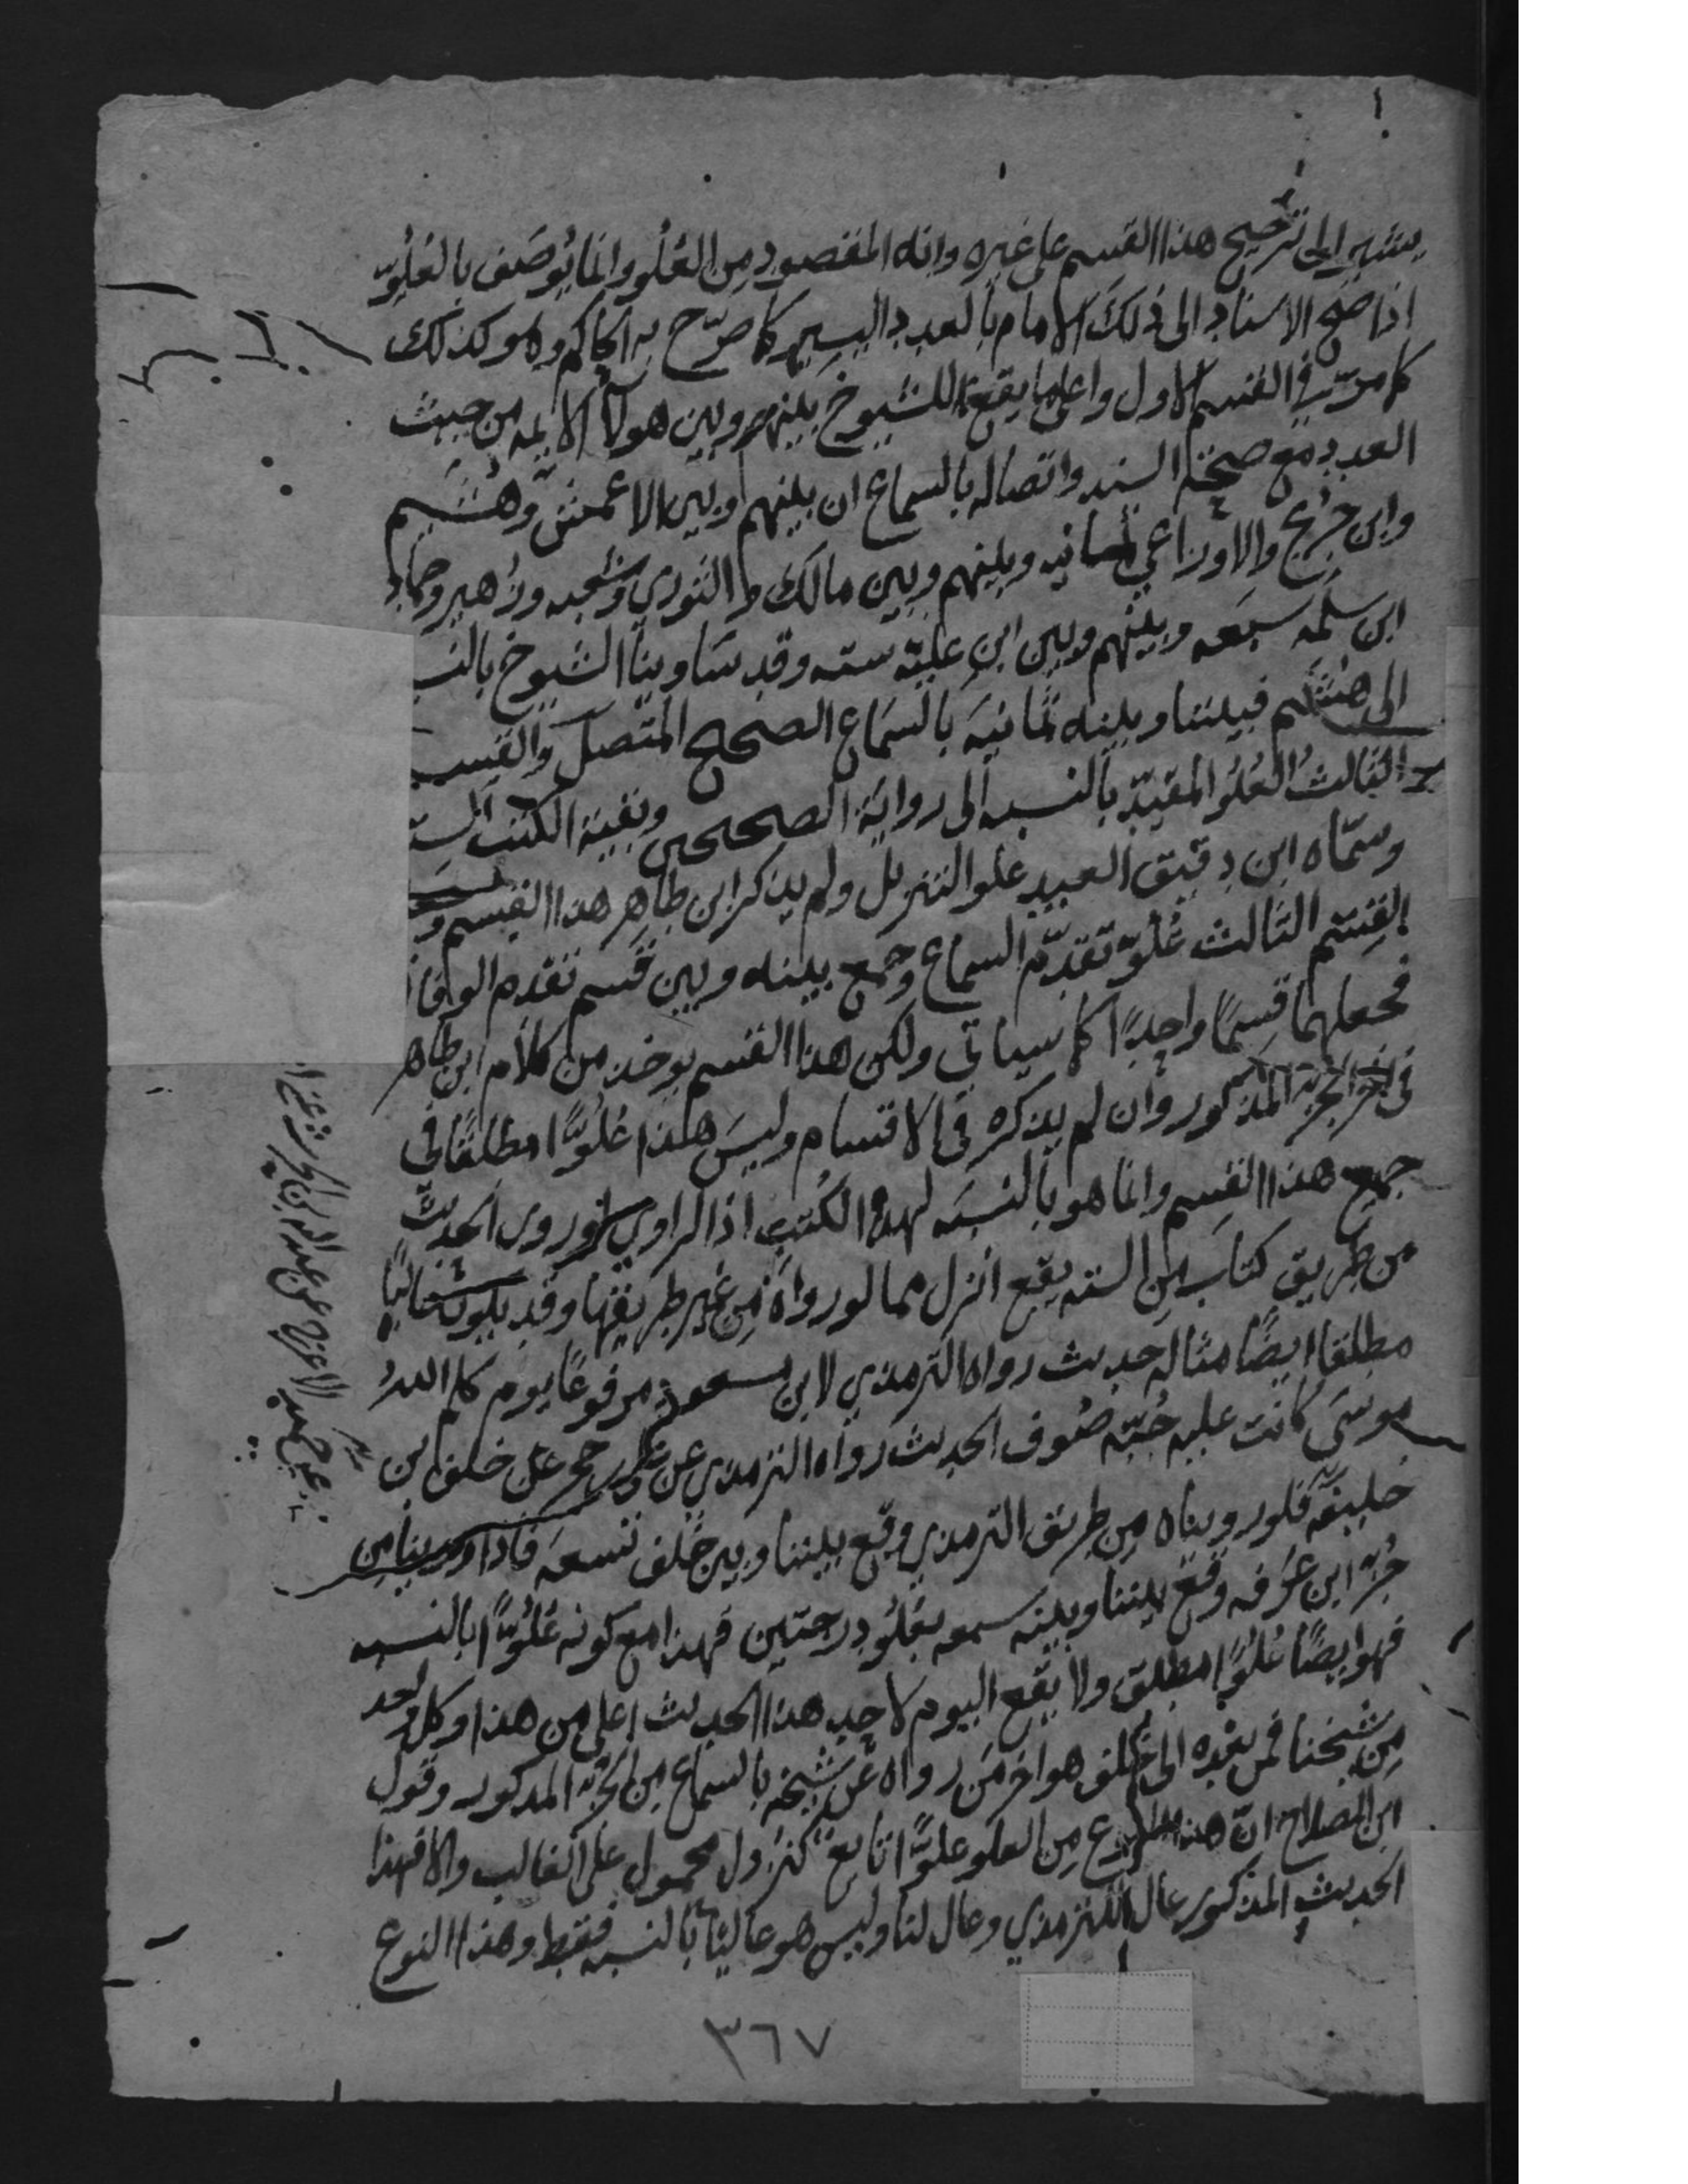 يشير الى ترجيح هذا القسم على غيره وانه المقصود من العُلُو وانما يُوصَف بالعُلُوّ
اذا صح الاسناد الى ذلك الامام بالعدد اليسير كما صرّح به الحاكم وهو كذلك
كما مرّ في القسم الاول واعلى ما يقع للشيوخ بينهم وبين هولاء الايمه من حيث
العدد مع صحة السند واتصاله بالسماع ان بينهم وبين الاعمش وهُشَيم
وابن جريج والاوزاعي ثمانيه وبينهم وبين مالك والثوري وشعبه وزهير وحماد
ابن سلمه سبعه وبينهم وبين ابن عليّه سته وقد ساوينا الشيوخ بالنسـ
الى هشيم فبيننا وبينه ثمانيَه بالسَماع الصحيح المتصل والقسـ
الثالثُ العُلُو المقيّد بالنسبه الى رواية الصحيحين وبقية الكتب الستـ
وسمّاه ابن دقيق العيد علو التنزيل ولم يذكر ابن طاهر هذا القسم و
القسم الثالث عُلُوّ تقدّم السماع وجمع بينه وبين قسم تقدم الوفا
فجعلهما قسمًا واحدًا كما سياتي ولكن هذا القسم يوخذ من كلام ابن طاهر
في اخر الجزء المذكور وان لم يذكره في الاقسام وليسَ هذا عُلُوًّا مطلقًا في
جميع هذا القسم وانما هو بالنسبَه لهذه الكُتب اذ الراوي لو روى الحديث
من طريق كتاب من السته يقع انزل مما لو رواه من غير طريقها وقد يكون عاليًا
مطلقا ايضًا مثاله حديث رواه الترمذي لابن مسعود مرفوعًا يوم كلم اللهُ
موسَى كانت عليه جُبّه صُوف الحديث رواه الترمذي عن علي بن حجر عن خلف ابن
خليفة فلو رويناه من طريق الترمذي وقع بيننا وبين خلف تسعَه فاذا رويناه من
جُزء ابن عَرَفه وقع بيننا وبينه سبعه بعُلُو درجتين فهذا مع كونه عُلُوًّا بالنسبه
فهو ايضًا عُلُوًّا مطلق ولا يقع اليوم لاحد هذا الحديث اعلى من هذا وكل واحد
مِن شيخنا فمن بَعْده الى خلف هو اخر مَن رواه عَن شيخه بالسماع من الجزء المذكور وقول
ابن الصلاح انّ هذا النوع مِن العلو علوًّا تابع لنزول محمول على الغالب والا فهذا
الحديث المذكور عال للترمذي وعال لنا وليس هو عاليًا بالنسبه فقط وهذا النوع
٣٦٧